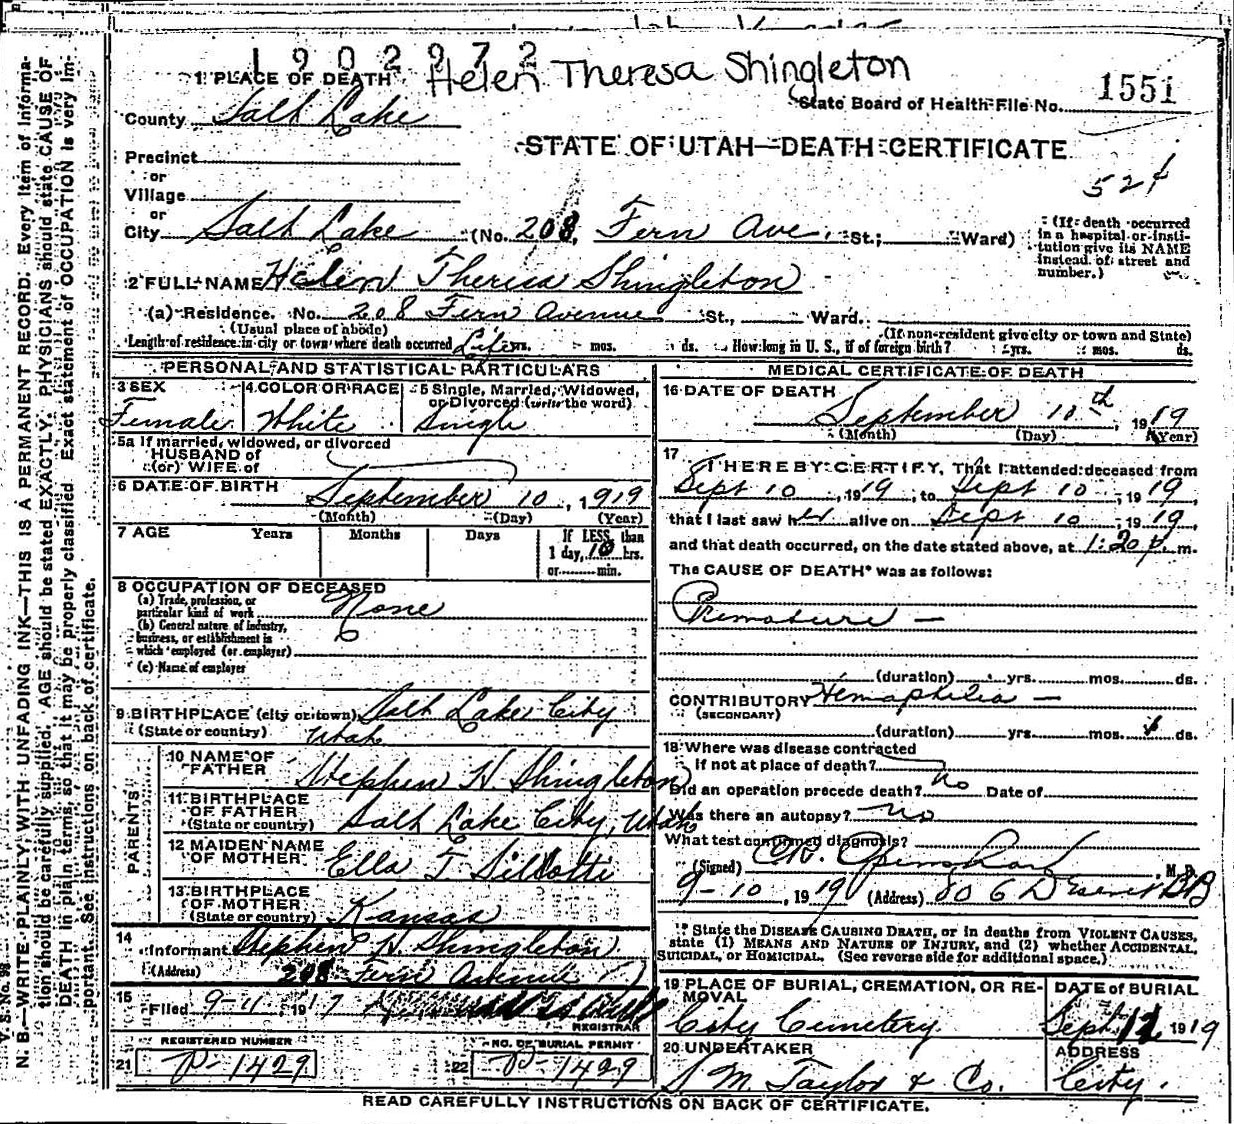 1902972
Helen Theresa Shingleton
1 PLACE OF DEATH
State Board of Health File No. 1551
County Salt Lake
STATE OF UTAH—DEATH CERTIFICATE
Precinct
or
Village
or
City Salt Lake (No. 208, Fern Ave. St.; Ward)
(If death occurred in a hospital or insti-
tution give its NAME
instead of street and
number.)
2 FULL NAME Helen Theresa Shingleton
(a) Residence. No. 208 Fern Avenue St., Ward.
(Usual place of abode) (If non-resident give city or town and State)
Length of residence in city or town where death occurred Life yrs. mos. ds. How long in U. S., if of foreign birth? yrs. mos. ds.
PERSONAL AND STATISTICAL PARTICULARS
3 SEX Female
4 COLOR OR RACE White
5 Single, Married, Widowed,
or Divorced (write the word) Single
5a If married, widowed, or divorced
HUSBAND of
(or) WIFE of
6 DATE OF BIRTH September 10, 1919
(Month) (Day) (Year)
7 AGE Years Months Days If LESS than
1 day, 10 hrs.
or min.
8 OCCUPATION OF DECEASED
(a) Trade, profession, or
particular kind of work None
(b) General nature of industry,
business, or establishment in
which employed (or employer)
(c) Name of employer
9 BIRTHPLACE (city or town) Salt Lake City
(State or country) Utah
PARENTS
10 NAME OF
FATHER Stephen H. Shingleton
11 BIRTHPLACE
OF FATHER
(State or country) Salt Lake City, Utah
12 MAIDEN NAME
OF MOTHER Ella T.
13 BIRTHPLACE
OF MOTHER
(State or country) Kansas
14
Informant Stephen H. Shingleton
(Address) 208 Fern Avenue
15
Filed 9-11, 1917
REGISTRAR
REGISTERED NUMBER
21 P-1429
NO. OF BURIAL PERMIT
22 P-1429
MEDICAL CERTIFICATE OF DEATH
16 DATE OF DEATH
September 10th, 1919
(Month) (Day) (Year)
17
I HEREBY CERTIFY, That I attended deceased from
Sept 10, 1919, to Sept 10, 1919,
that I last saw her alive on Sept 10, 1919,
and that death occurred, on the date stated above, at 1:20 p. m.
The CAUSE OF DEATH* was as follows:
Premature —
(duration) yrs. mos. ds.
CONTRIBUTORY Hemaphilia —
(SECONDARY)
(duration) yrs. mos. ds.
18 Where was disease contracted
if not at place of death?
Did an operation precede death? no Date of
Was there an autopsy? no
What test confirmed diagnosis?
(Signed) M. D.
9-10, 1919 (Address) 806 Deseret B B
* State the DISEASE CAUSING DEATH, or in deaths from VIOLENT CAUSES,
state (1) MEANS AND NATURE OF INJURY, and (2) whether ACCIDENTAL,
SUICIDAL, or HOMICIDAL. (See reverse side for additional space.)
19 PLACE OF BURIAL, CREMATION, OR RE-
MOVAL
City Cemetery
DATE of BURIAL
Sept. 12 1919
20 UNDERTAKER
S. M. Taylor & Co.
ADDRESS
City.
READ CAREFULLY INSTRUCTIONS ON BACK OF CERTIFICATE.
V. S. No. 98
N. B.—WRITE PLAINLY, WITH UNFADING INK—THIS IS A PERMANENT RECORD. Every item of informa-
tion should be carefully supplied. AGE should be stated EXACTLY. PHYSICIANS should state CAUSE OF
DEATH in plain terms, so that it may be properly classified. Exact statement of OCCUPATION is very im-
portant. See instructions on back of certificate.